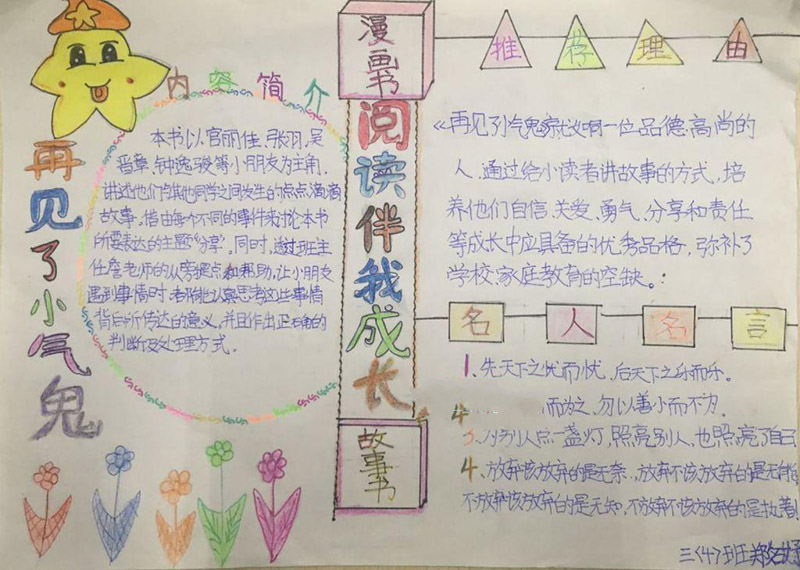 漫画书
阅读伴我成长
故事书
再见了小气鬼
内容简介
本书以官丽佳、张羽、吴
晋章、钟逸骏等小朋友为主角,
讲述他们与其他同学之间发生的点点滴滴
故事,借由每个不同的事件来讨论本书
所要表达的主题“分享”。同时,透过班主
任詹老师的从旁提点和帮助,让小朋友
遇到事情时,都能认真思考这些事情
背后所传达的意义,并且作出正确的
判断及处理方式。
推荐理由
《再见了小气鬼
一位品德高尚的
人,通过给小读者讲故事的方式,培
养他们自信、关爱、勇气、分享和责任
等成长中应具备的优秀品格,弥补了
学校、家庭教育的空缺。
名人名言
1、先天下之忧而忧,后天下之乐而乐。
而为之,勿以善小而不为
为别人点一盏灯,照亮别人,也照亮了自己
4、放弃该放弃的是无奈,放弃不该放弃的是无能
不放弃该放弃的是无知,不放弃不该放弃的是执着
三〈4〉班郑